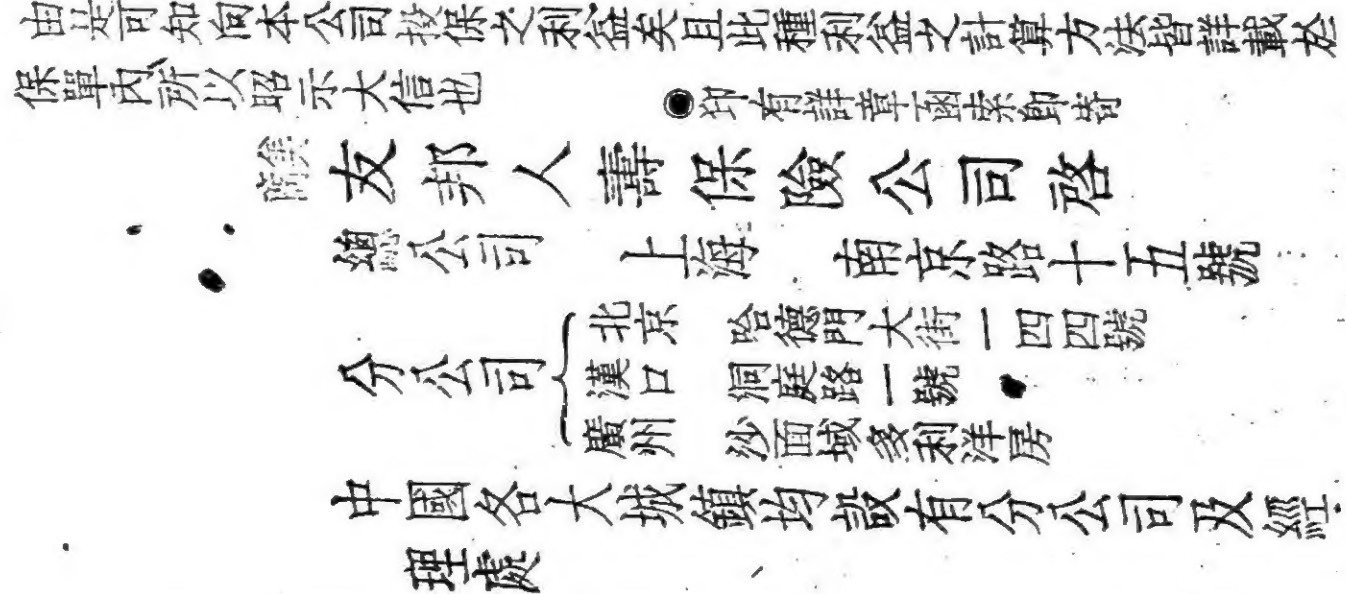 由是可知向本公司投保之利益矣且此種利益之計算方法皆詳載於
保單內所以昭示大信也
◉印有詳章函索即寄
友邦人壽保險公司啓
總公司 上海 南京路十五號
分公司
北京 哈德門大街一四四號
漢口 洞庭路一號
廣州 沙面域多利洋房
中國各大城鎮均設有分公司及經
理處